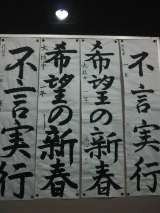 不言実行
希望の新春
希望の新春
不言実行